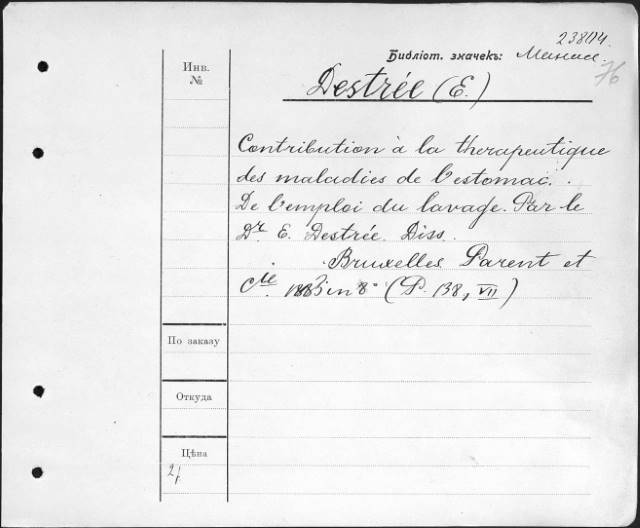 23804.
Библіот. значекъ:
76
Инв.
№
Destrée (E.)
Contribution à la therapeutique
des maladies de l'estomac.
De l'emploi du lavage. Par le
Dr. E. Destrée. Diss.
Bruxelles Parent et
Cie. 1883 in 8° (P. 138, VII)
По заказу
Откуда
Цѣна
2f.